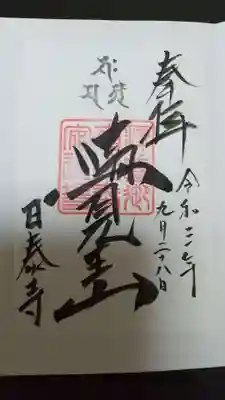 奉拝
令和三年
九月二十八日
覺王山
日泰寺